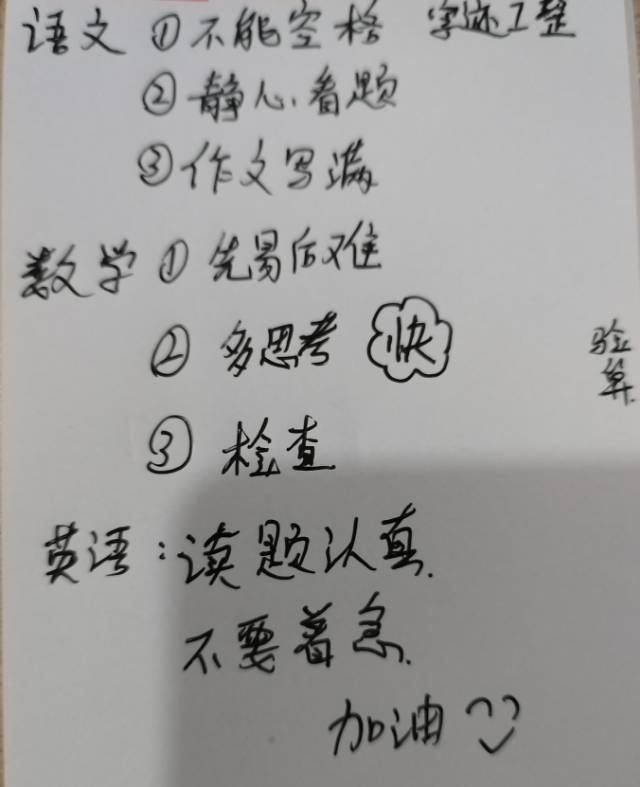 语文 ①不能空格 字迹工整
②静心看题
③作文写满
数学 ①先易后难
②多思考 快
验算
③检查
英语：读题认真.
不要着急.
加油